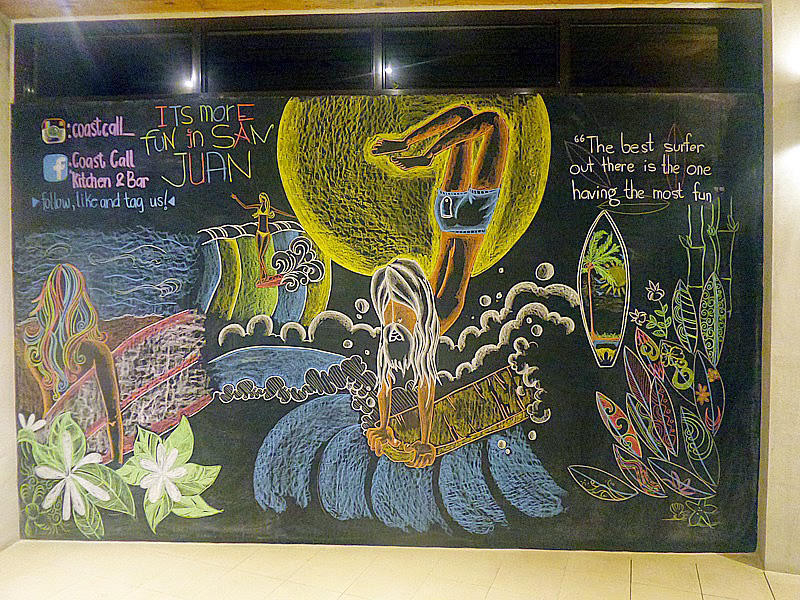 : coastcall_
: Coast Call
Kitchen & Bar
follow, like and tag us!
ITS MORE
FUN in SAN
JUAN
"The best surfer
out there is the one
having the most fun"